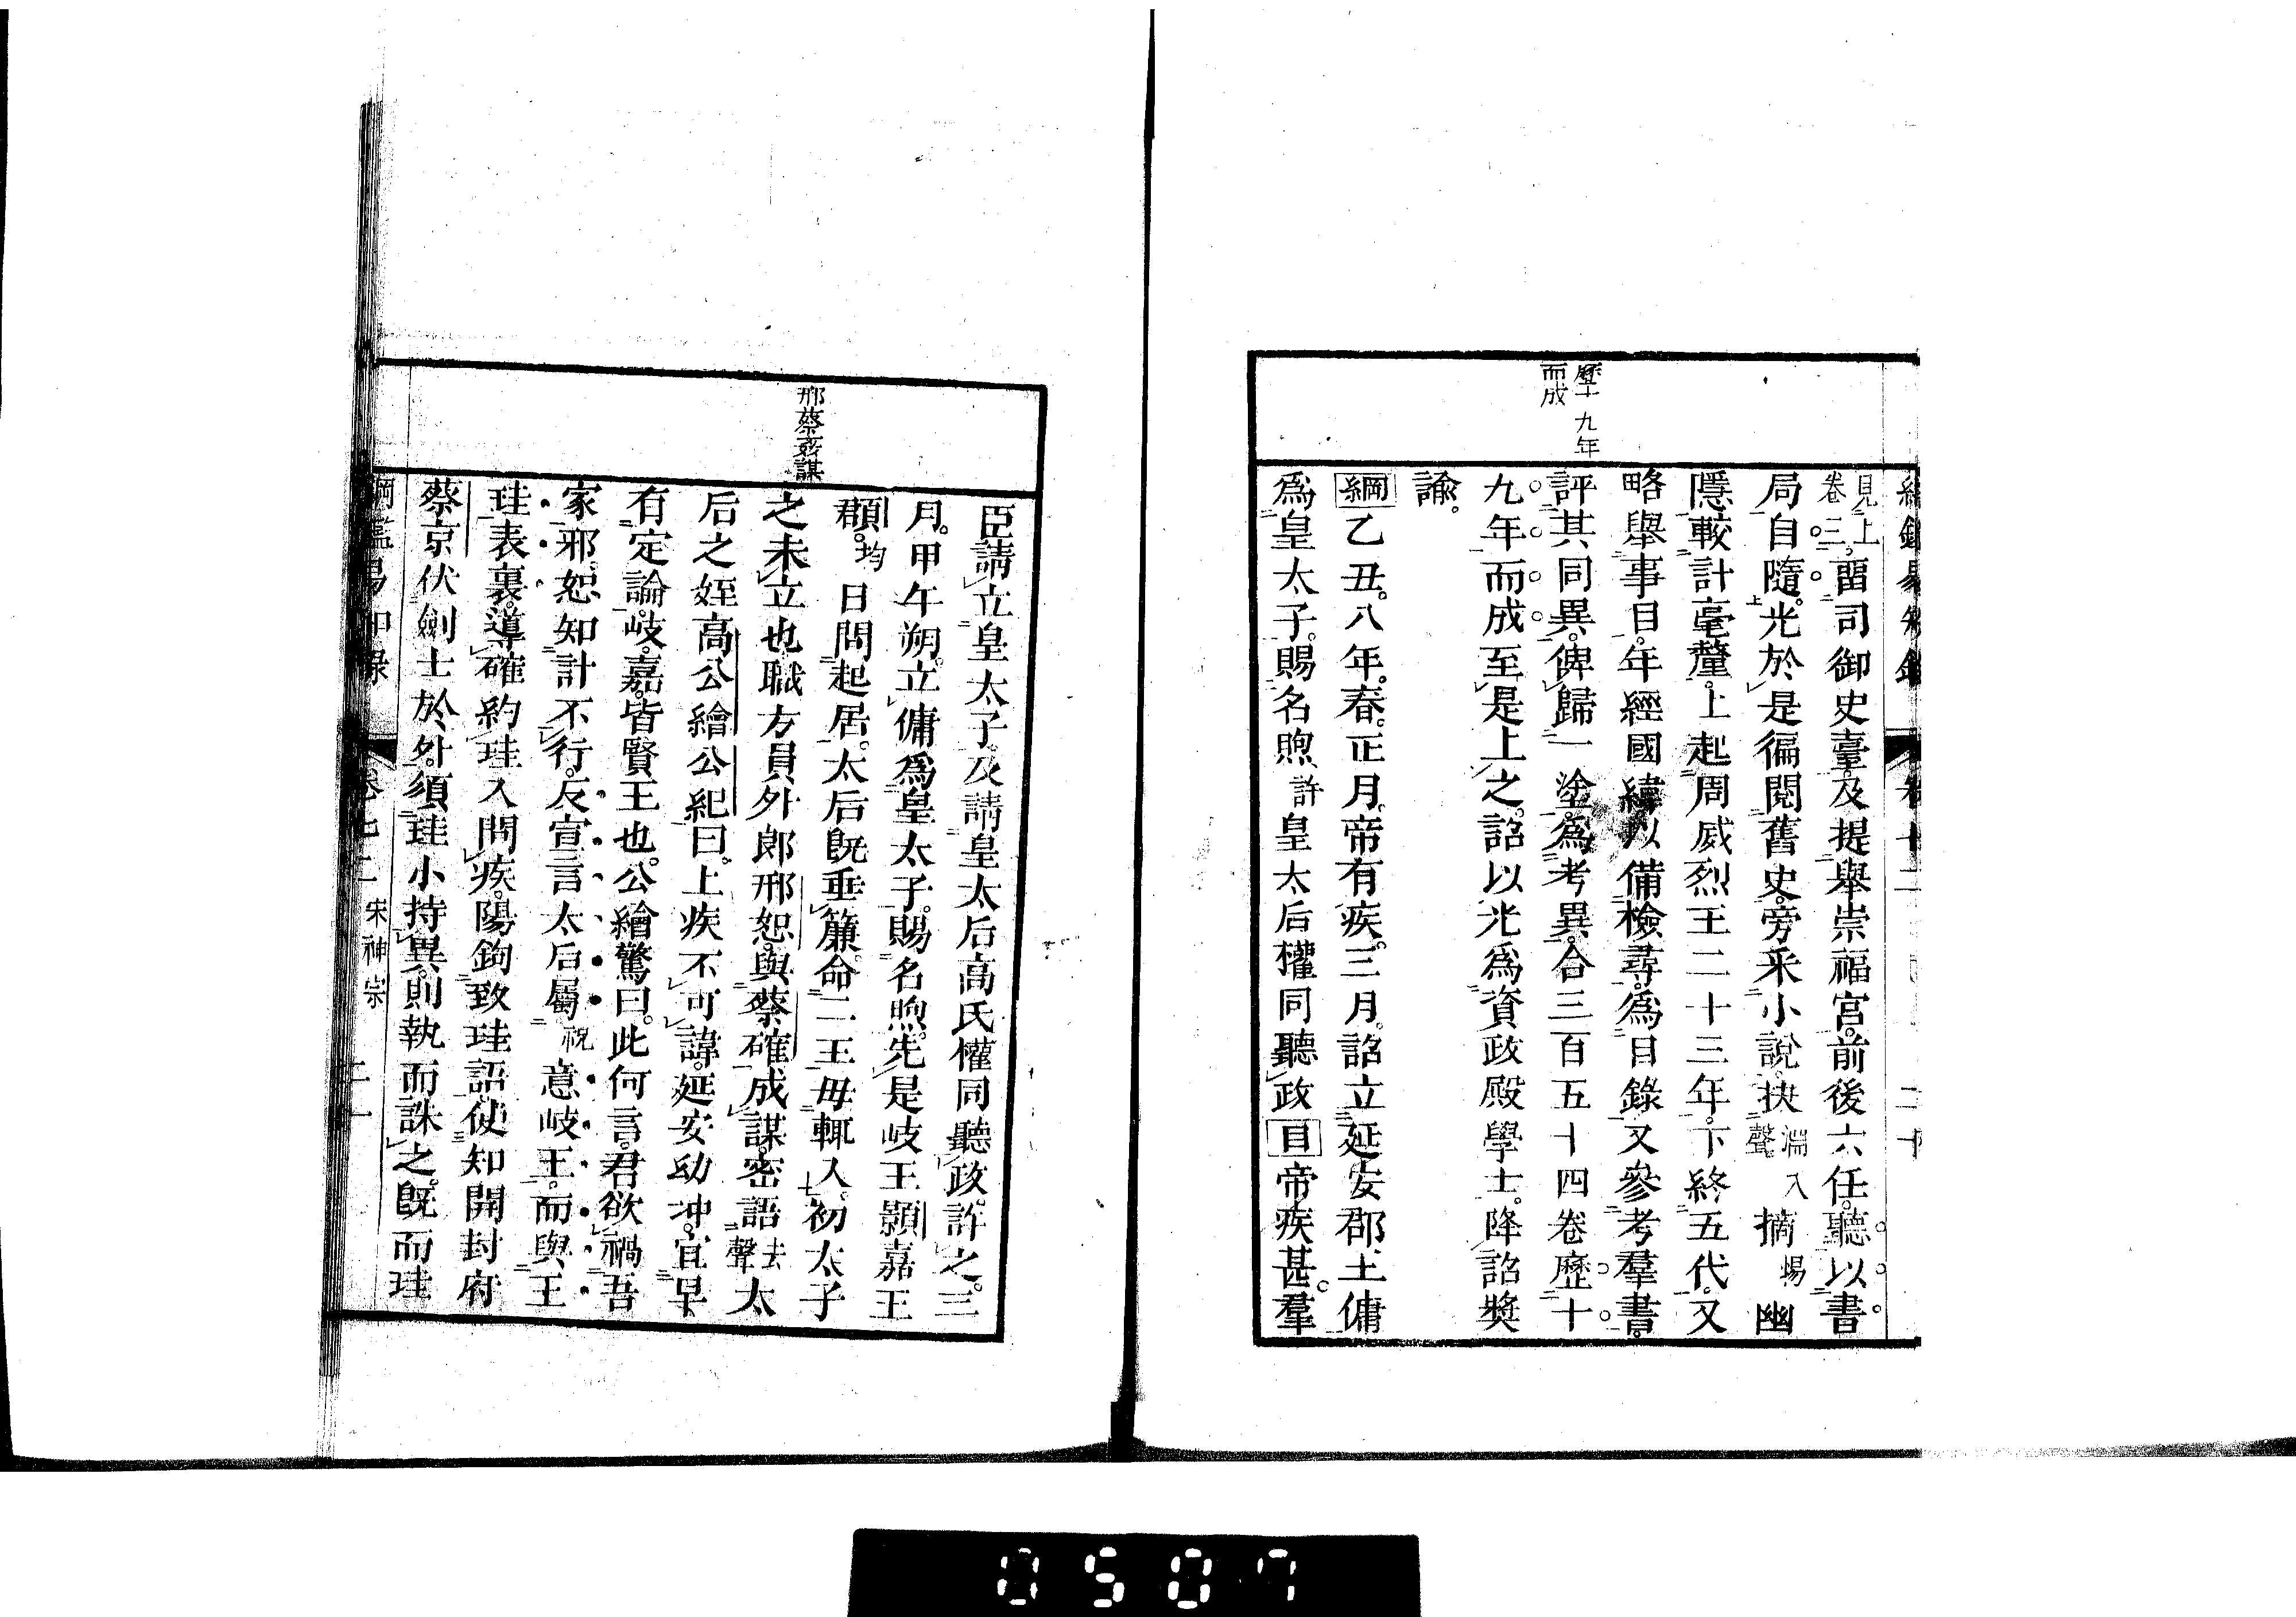 歷十九年
而成
見上
卷三。畱司御史臺。及提舉崇福宮。前後六任。聽以書
局自隨。光於是徧閱舊史。旁采小說。抉淵入聲摘暘幽
隱。較計毫釐。上起周威烈王二十三年。下終五代。又
略舉事目。年經國緯。以備檢尋。爲目錄。又參考羣書。
評其同異。俾歸一塗。爲考異。合三百五十四卷。歷十
九年而成。至是上之。詔以光爲資政殿學士。降詔奬
諭。
綱乙丑。八年。春。正月。帝有疾。三月。詔立延安郡王傭
爲皇太子。賜名煦許皇太后權同聽政目帝疾甚。羣
邢蔡姦謀
臣請立皇太子。及請皇太后高氏權同聽政。許之。三
月。甲午朔。立傭爲皇太子。賜名煦。先是岐王顥嘉王
頵。均日問起居。太后旣垂簾。命二王毋輒入。初太子
之未立也。職方員外郎邢恕。與蔡確成謀。密語去聲太
后之姪高公繪公紀曰。上疾不可諱。延安幼冲。宜早
有定論。岐。嘉。皆賢王也。公繪驚曰。此何言。君欲禍吾
家邪。恕知計不行。反宣言太后屬祝意岐王。而與王
珪表裏。導確約珪入問疾。陽鉤致珪語。使知開封府
蔡京伏劍士於外。須珪小持異。則執而誅之。旣而珪
綱鑑易知錄 卷七二 宋神宗 二一
0507